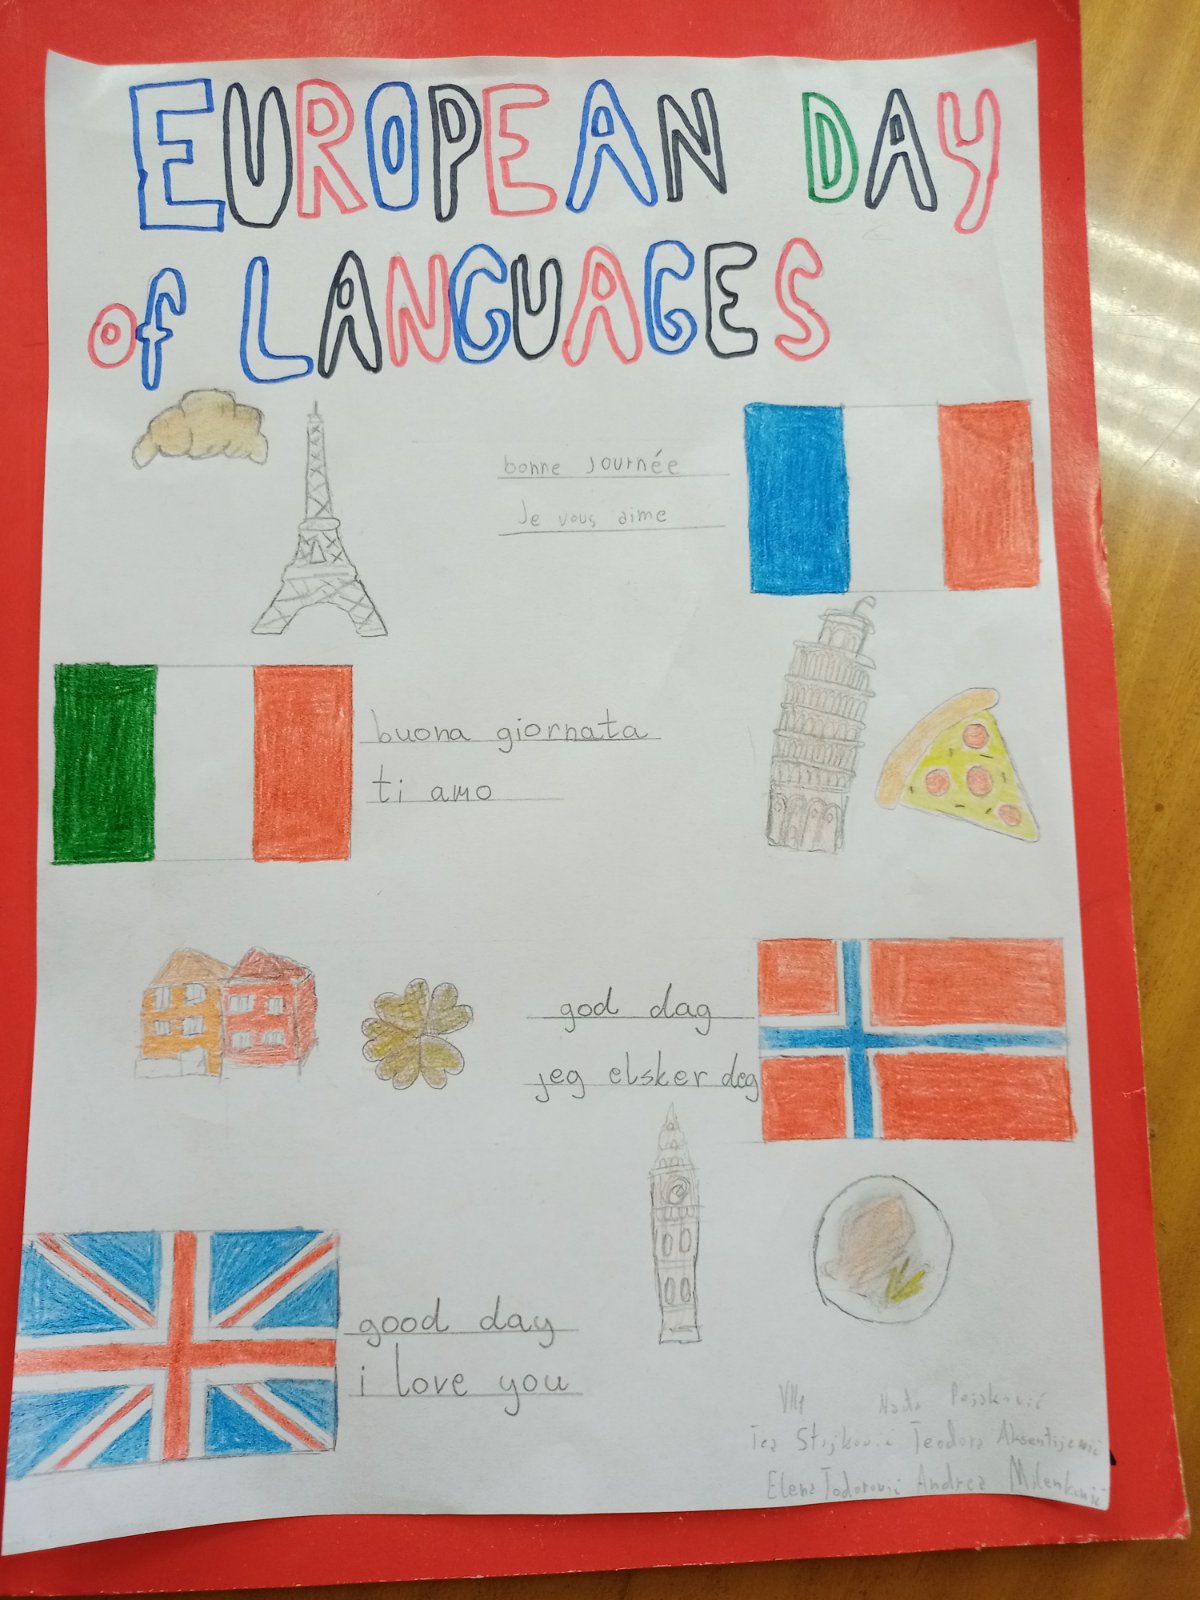 EUROPEAN DAY
of LANGUAGES
bonne journée
Je vous aime
buona giornata
ti amo
god dag
jeg elsker deg
good day
i love you
Nađa
Tea Stojković Teodora Aksentijević
Elena Todorović Andrea Milenković